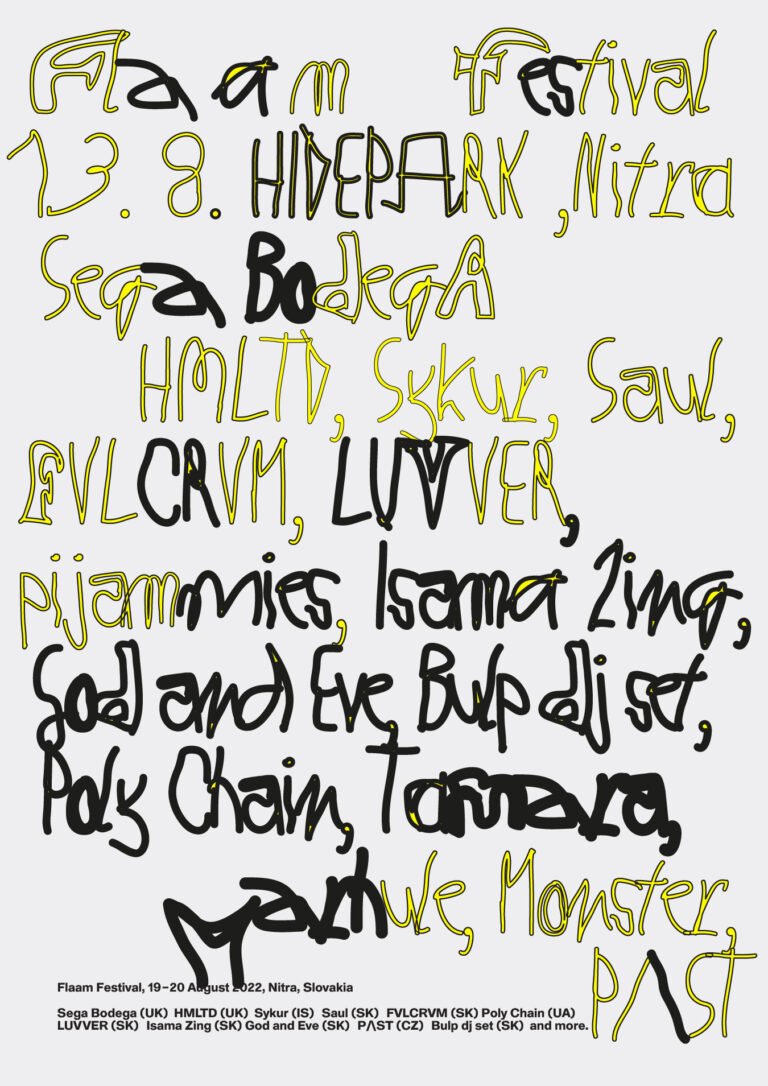 Flaam Festival
13. 8. HIDEPARK ,Nitra
Sega BodegA
HMLTD, Sykur, Saul,
FVLCRVM, LUVVER,
pijammies, Isama Zing,
God and Eve, Bulp dj set,
Poly Chain, Tamara,
Marhule, Monster,
PΛST
Flaam Festival, 19–20 August 2022, Nitra, Slovakia
Sega Bodega (UK) HMLTD (UK) Sykur (IS) Saul (SK) FVLCRVM (SK) Poly Chain (UA)
LUVVER (SK) Isama Zing (SK) God and Eve (SK) PΛST (CZ) Bulp dj set (SK) and more.